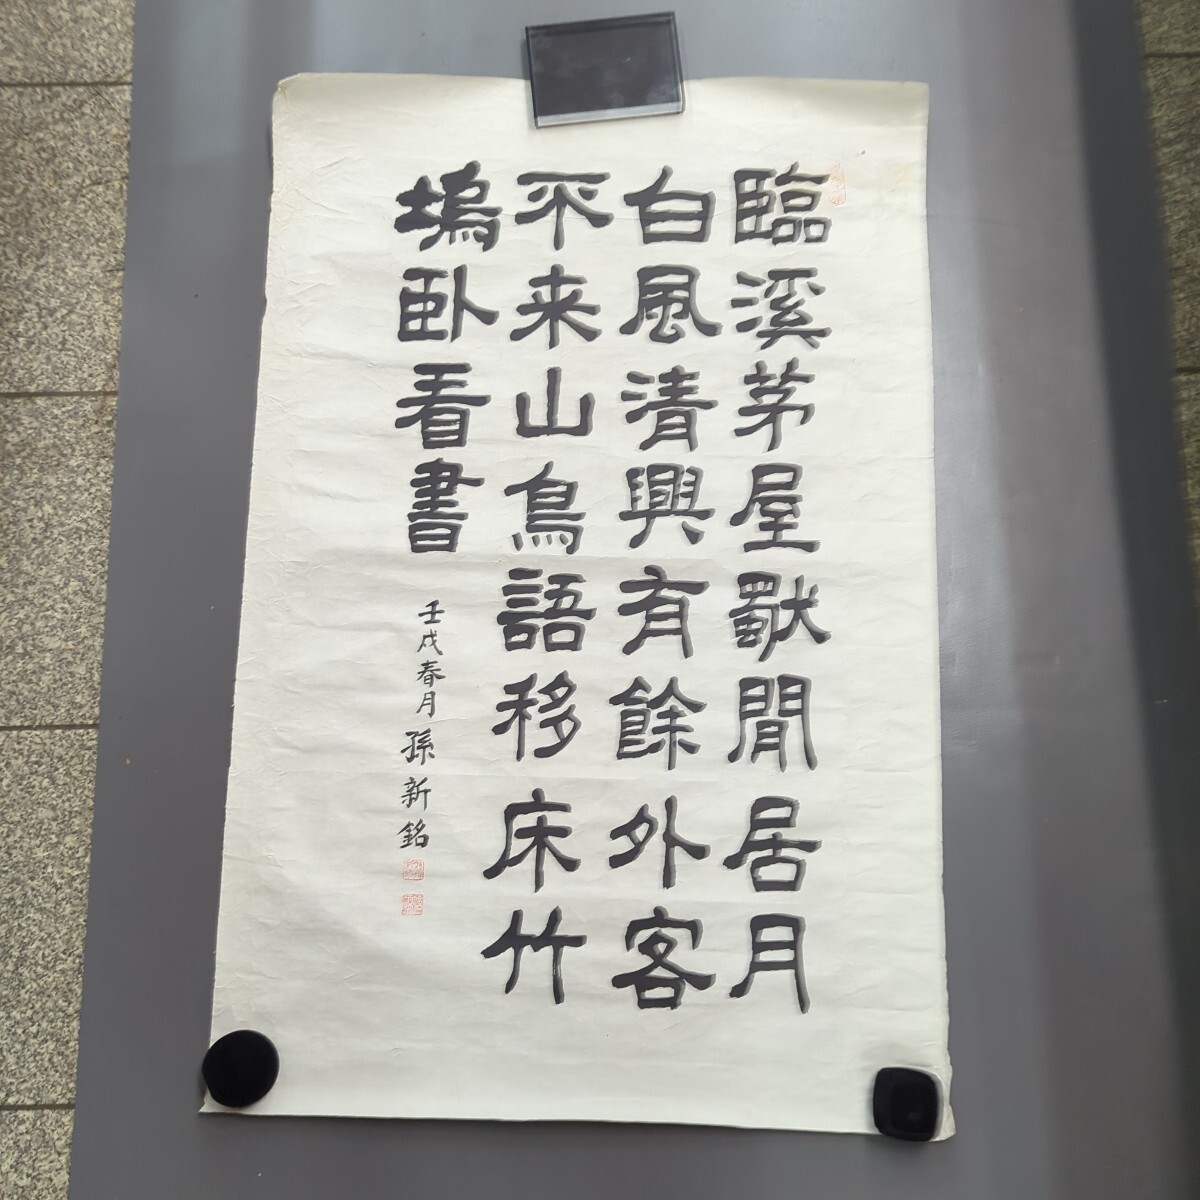 臨溪茅屋獨閒居月
白風清興有餘外客
不来山鳥語移床竹
塢卧看書
壬戌春月孫新銘